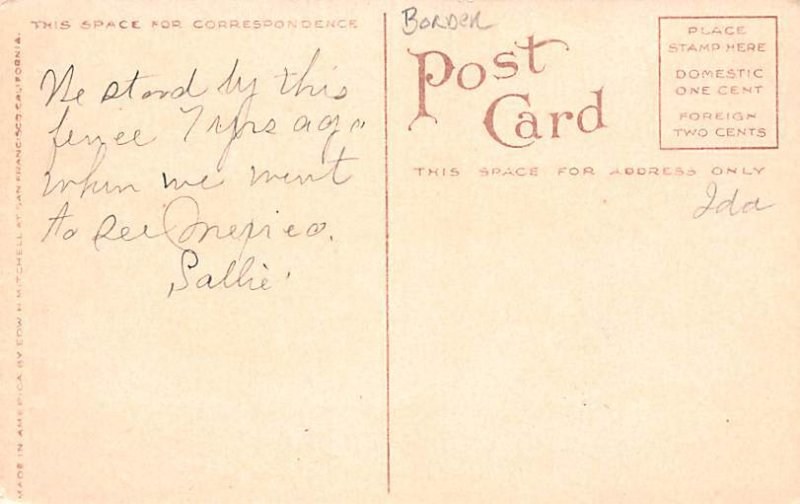 THIS SPACE FOR CORRESPONDENCE
We stand by this
fence 7 yrs ago
when we went
to see Mexico.
Sallie
BORDER
Post
Card
PLACE
STAMP HERE
DOMESTIC
ONE CENT
FOREIGN
TWO CENTS
THIS SPACE FOR ADDRESS ONLY
Ida
MADE IN AMERICA BY EDW H MITCHELL AT SAN FRANCISCO CALIFORNIA.